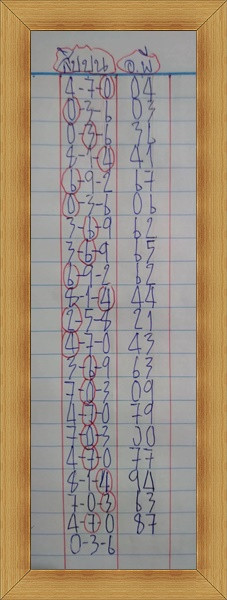 สูบน อ.พี
4-7-0 04
0-3-6 06
0-3-6 36
8-1-4 41
6-9-2 67
0-3-6 06
3-6-9 62
3-6-9 65
6-9-2 62
8-1-4 44
2-5-8 21
4-7-0 43
3-6-9 63
7-0-3 09
4-7-0 79
7-0-3 30
4-7-0 77
8-1-4 94
7-0-3 63
4-7-0 87
0-3-6